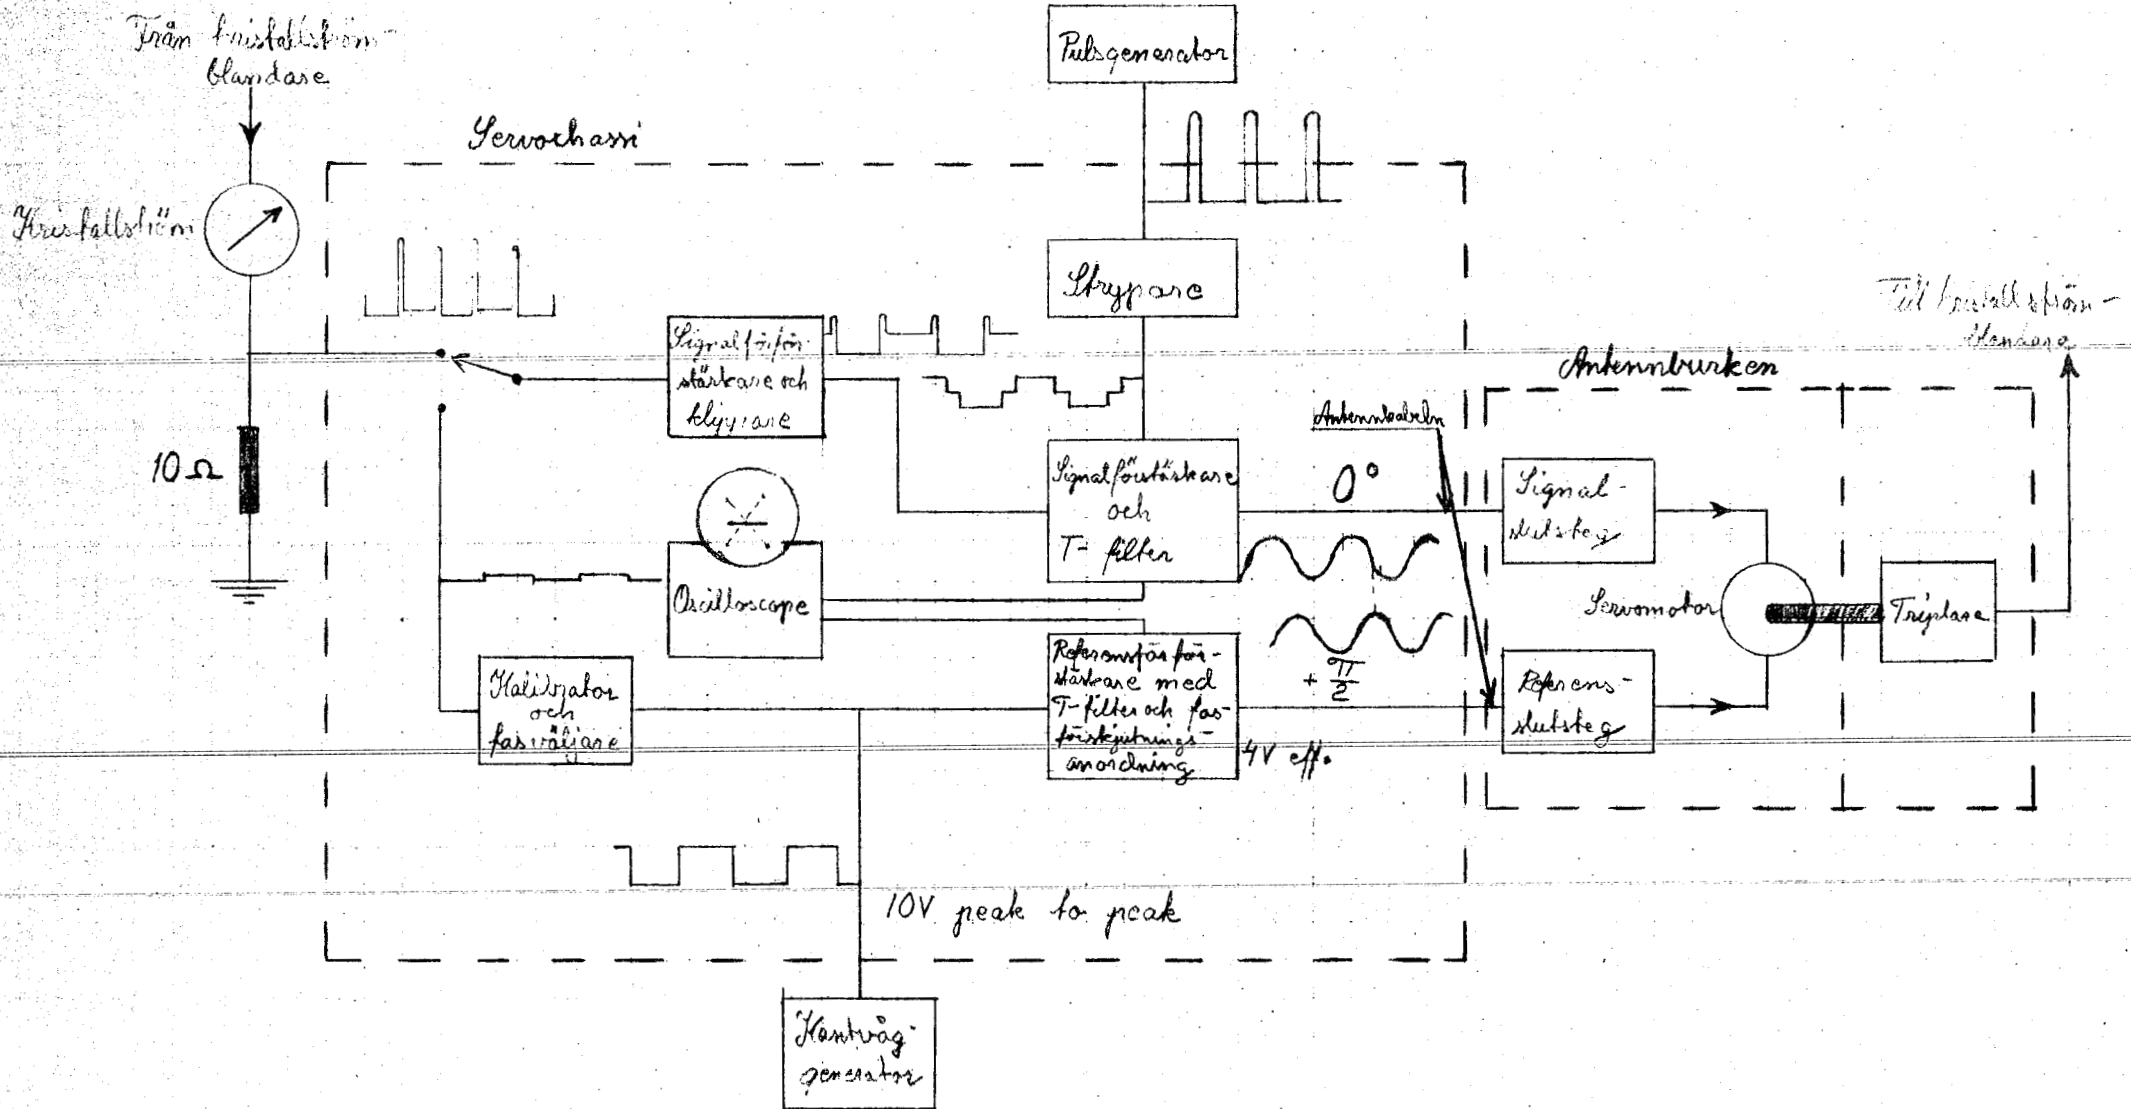 Från kristallström-
blandare
Pulsgenerator
Servochassi
Kristallström
Strypare
Till kristallström-
blandare
Signalförför-
stärkare och
klippare
Antennburken
Antennkabeln
10 Ω
Signalförstärkare
och
T- filter
0°
Signal-
slutsteg
Oscilloscope
Servomotor
Triplare
Referensförför-
stärkare med
T-filter och fas-
förskjutnings-
anordning
+ π/2
Kalibrator
och
fasväljare
Referens-
slutsteg
4V eff.
10V peak to peak
Kantvåg-
generator